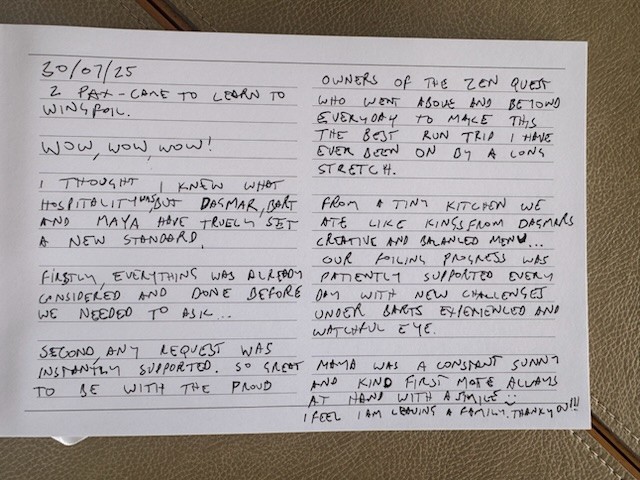 30/07/25
2 PAX - CAME TO LEARN TO
WINGFOIL.
WOW, WOW, WOW!
I THOUGHT I KNEW WHAT
HOSPITALITY WAS, BUT DAGMAR, BART
AND MAYA HAVE TRUELY SET
A NEW STANDARD.
FIRSTLY, EVERYTHING WAS ALREADY
CONSIDERED AND DONE BEFORE
WE NEEDED TO ASK...
SECOND, ANY REQUEST WAS
INSTANTLY SUPPORTED. SO GREAT
TO BE WITH THE PROUD
OWNERS OF THE ZEN QUEST
WHO WENT ABOVE AND BEYOND
EVERYDAY TO MAKE THIS
THE BEST RUN TRIP I HAVE
EVER BEEN ON BY A LONG
STRETCH.
FROM A TINY KITCHEN WE
ATE LIKE KINGS FROM DAGMARS
CREATIVE AND BALANCED MENU...
OUR FOILING PROGRESS WAS
PATIENTLY SUPPORTED EVERY
DAY WITH NEW CHALLENGES
UNDER BARTS EXPERIENCED AND
WATCHFUL EYE.
MAYA WAS A CONSTANT SUNNY
AND KIND FIRST MATE ALWAYS
AT HAND WITH A SMILE :)
I FEEL I AM LEAVING A FAMILY. THANKYOU!!!